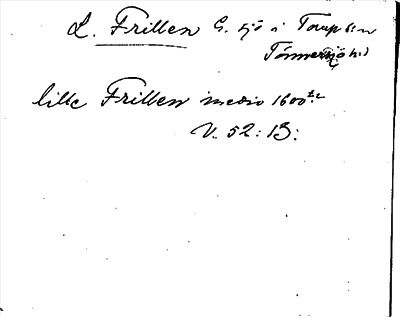 L. Frillen G. sjö i Torup s:n
Tönnersjö h:d
lille Frillen medio 1600 t:l
V. 52:13: